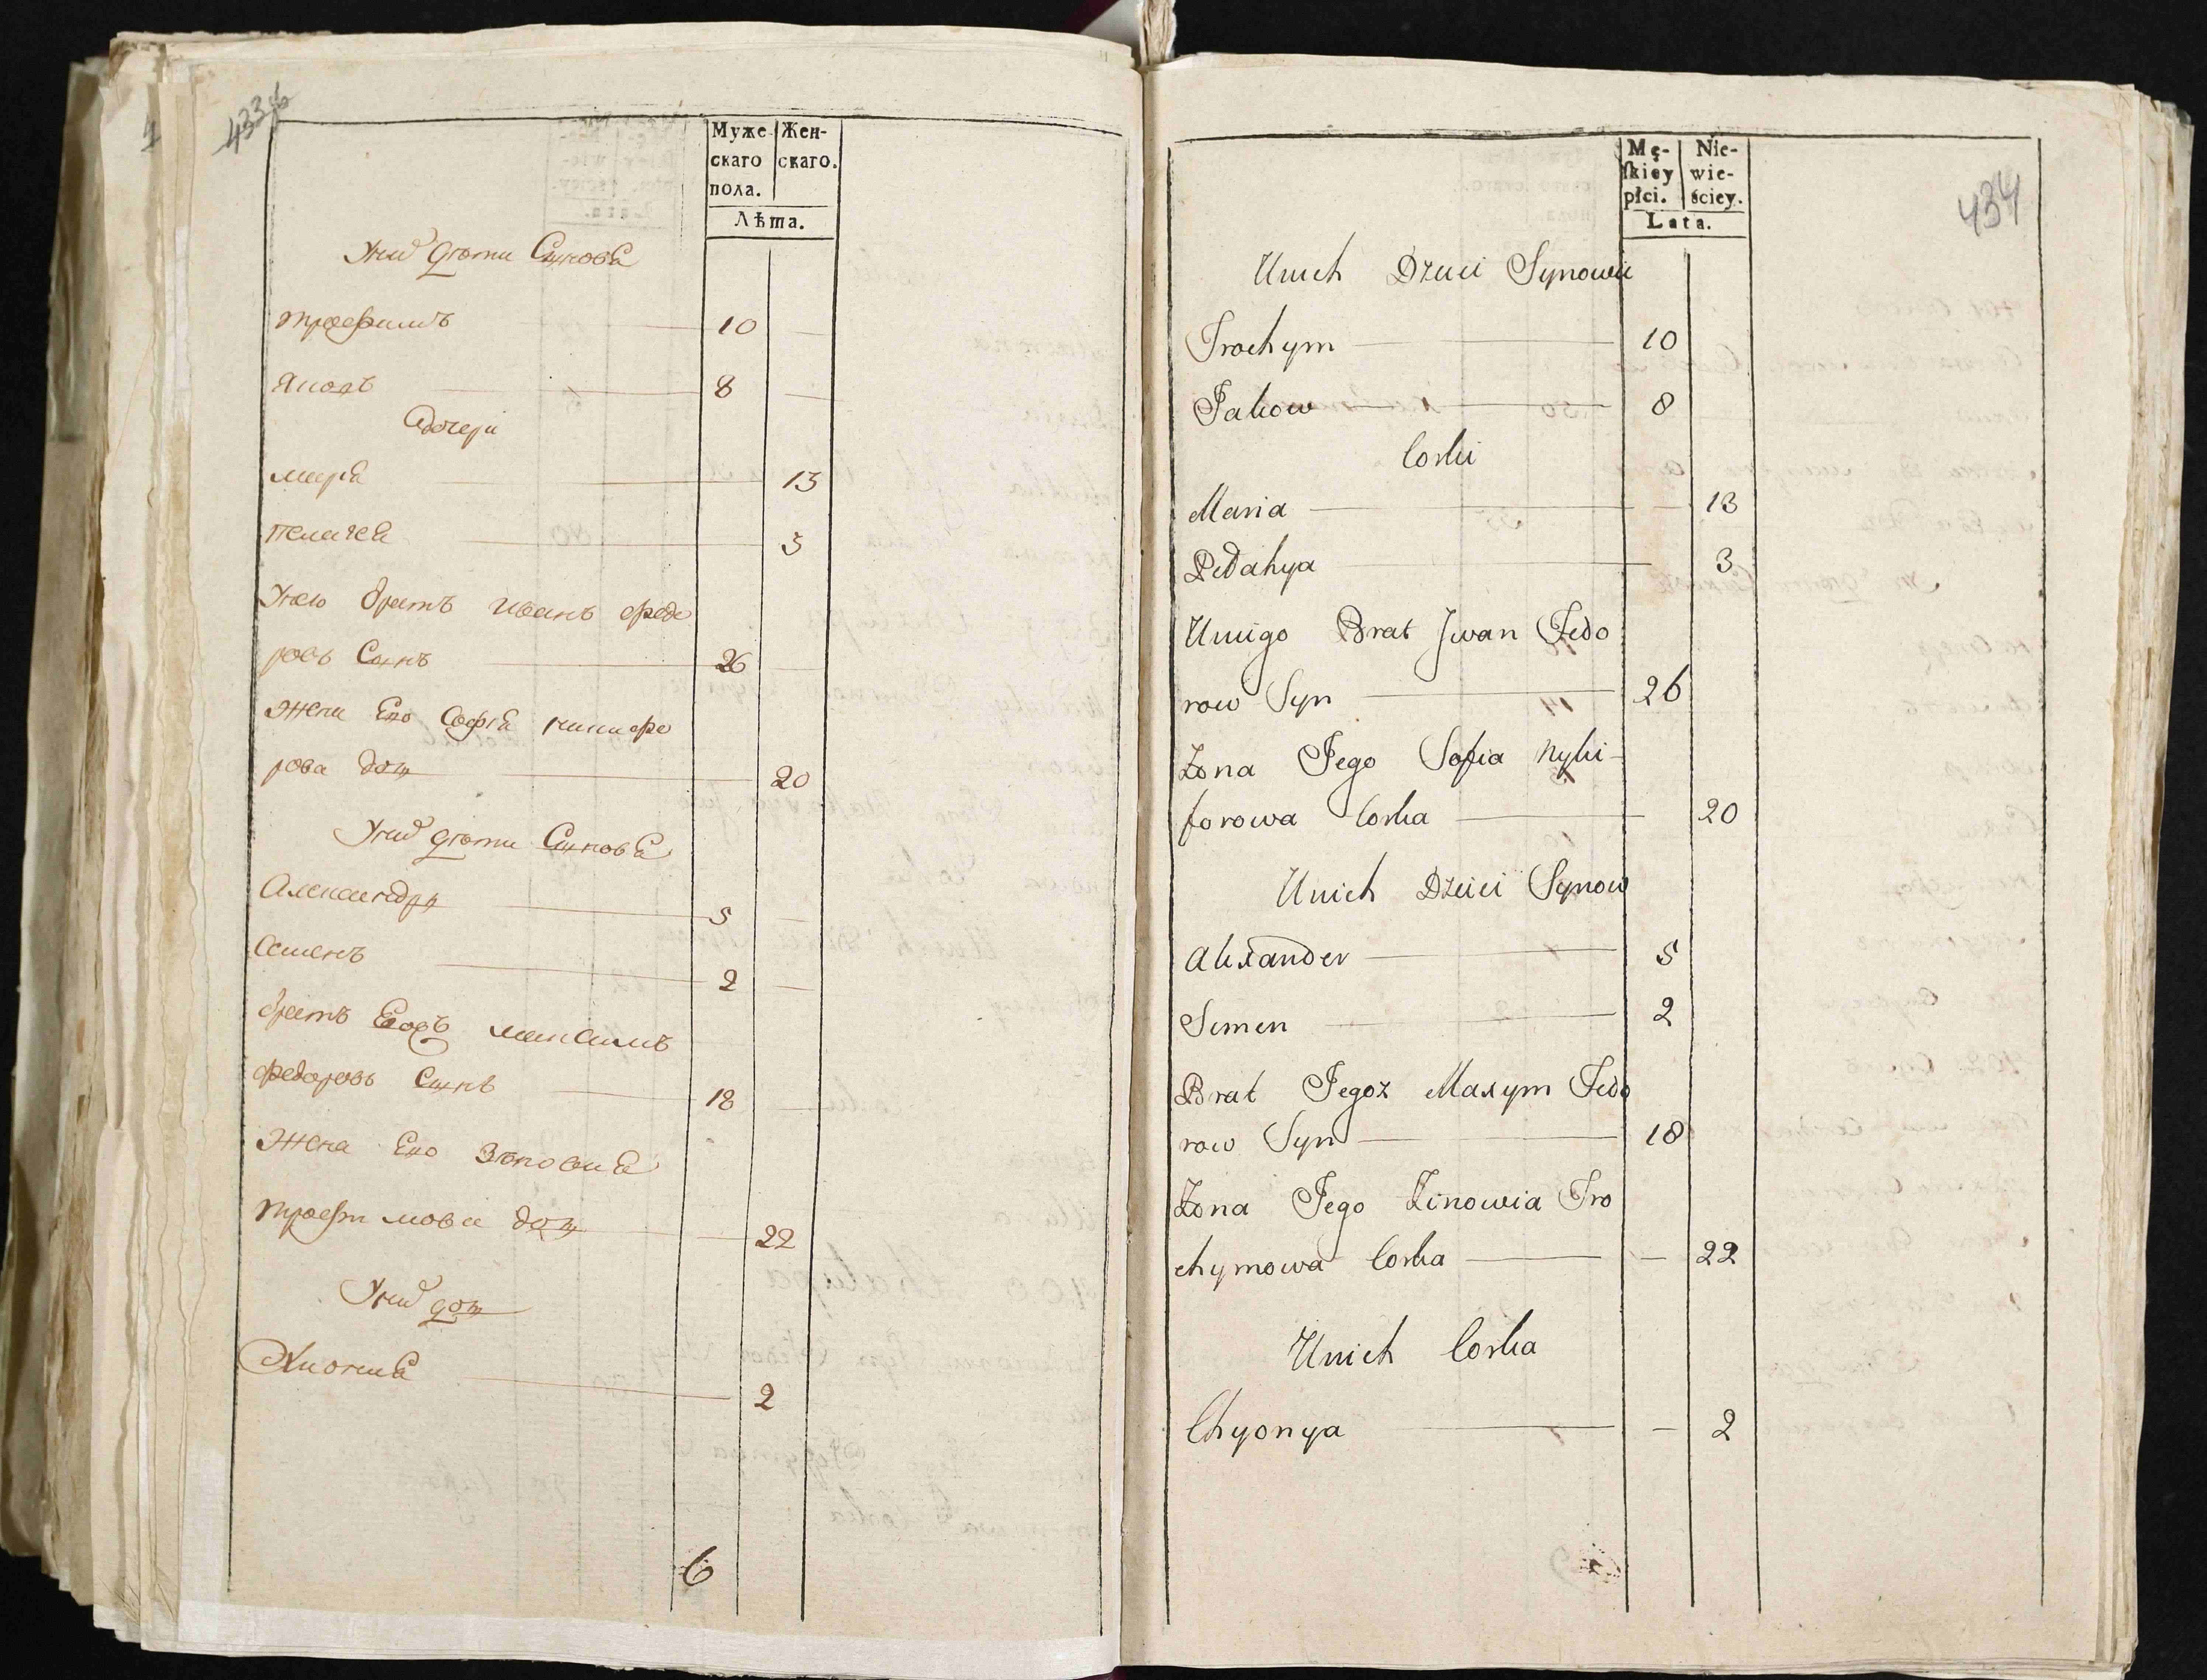 433 об
Муже Жен-
скаго скаго.
пола.
Лѣта.
Унихъ дѣти Синовя
трофимъ 10
Яковъ 8
Дочери
маря 13
пелагея 3
Унего братъ иванъ федо
ровъ Синъ 26
жена Его Софія никифо
рова дощ 20
Унихъ дѣти Синовя
Александръ 5
Семенъ 2
братъ Егожъ максимъ
федоровъ Синъ 18
жена Его Зѣновия
трофимова дощ 22
Унихъ дощ
Хиония 2
6
434
Mę- Nie-
ſkiey wie-
płci. ściey.
Lata.
Unich Dzieci Synowie
Trochym 10
Jakow 8
Corki
Maria 13
Pedahya 3
Uniego Brat Jwan Fedo
row Syn 26
Zona Jego Sofia Nyki-
forowa Corka 20
Unich Dzieci Synow
Alexander 5
Semen 2
Brat Jegoz Maxym Fedo
row Syn 18
Zona Jego Zinowia Tro
chymowa Corka — 22
Unich Corka
Chyonya — 2